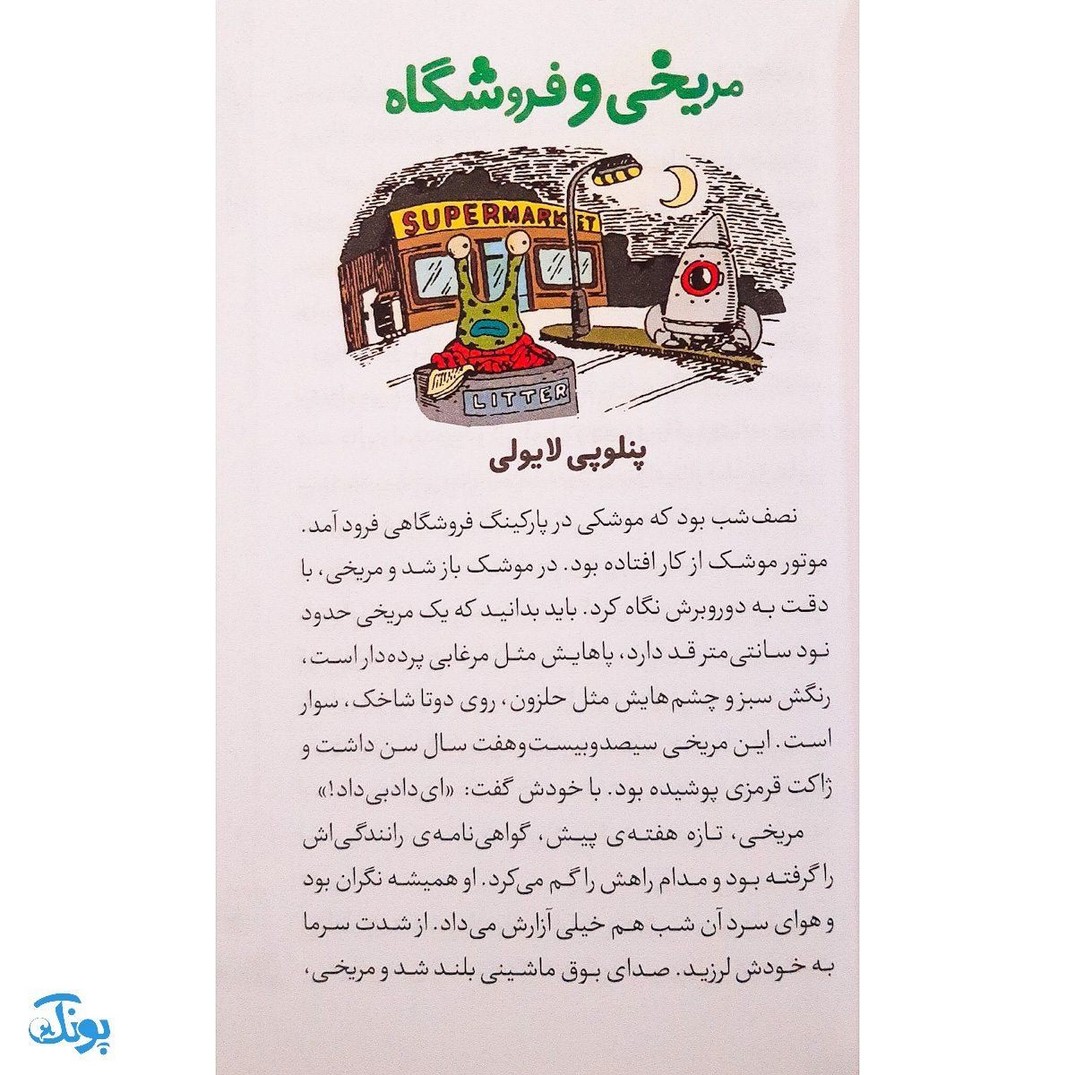 مریخی و فروشگاه
SUPERMARKET
LITTER
پنلوپی لایولی
نصف‌شب بود که موشکی در پارکینگ فروشگاهی فرود آمد.
موتور موشک از کار افتاده بود. در موشک باز شد و مریخی، با
دقت به دوروبرش نگاه کرد. باید بدانید که یک مریخی حدود
نود سانتی‌متر قد دارد، پاهایش مثل مرغابی پرده‌دار است،
رنگش سبز و چشم‌هایش مثل حلزون، روی دوتا شاخک، سوار
است. این مریخی سیصدوبیست‌وهفت سال سن داشت و
ژاکت قرمزی پوشیده بود. با خودش گفت: «ای‌دادبی‌داد!»
مریخی، تازه هفته‌ی پیش، گواهی‌نامه‌ی رانندگی‌اش
را گرفته بود و مدام راهش را گم می‌کرد. او همیشه نگران بود
و هوای سرد آن شب هم خیلی آزارش می‌داد. از شدت سرما
به خودش لرزید. صدای بوق ماشینی بلند شد و مریخی،
پونک